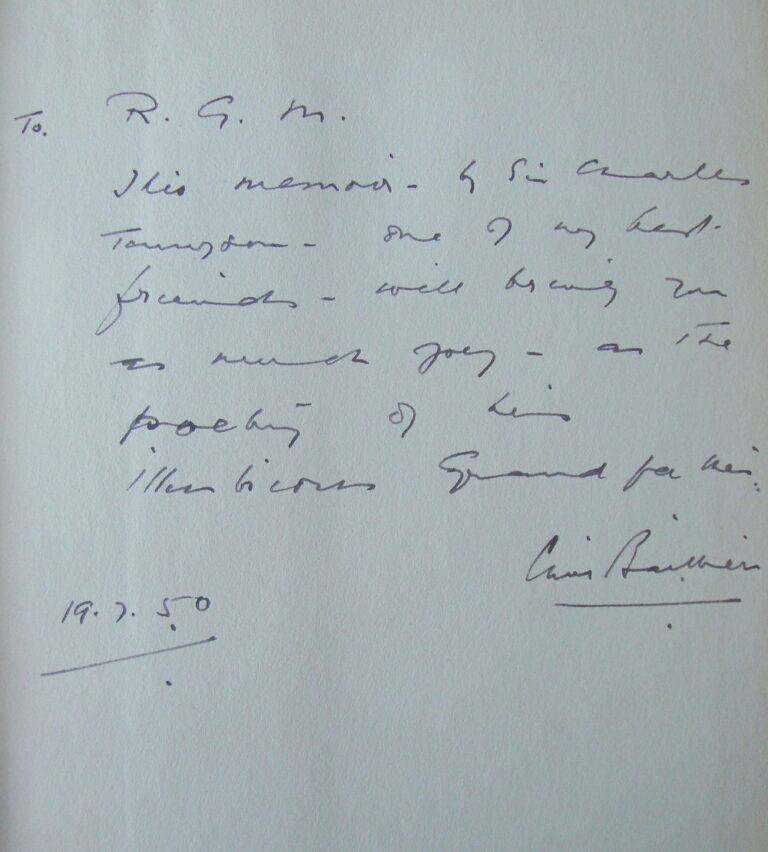 To. R. G. M.
This memoir - by Sir Charles
Tennyson - one of my best
friends - will bring you
as much joy - as the
poetry of his
illustrious Grandfather.
19.7.50